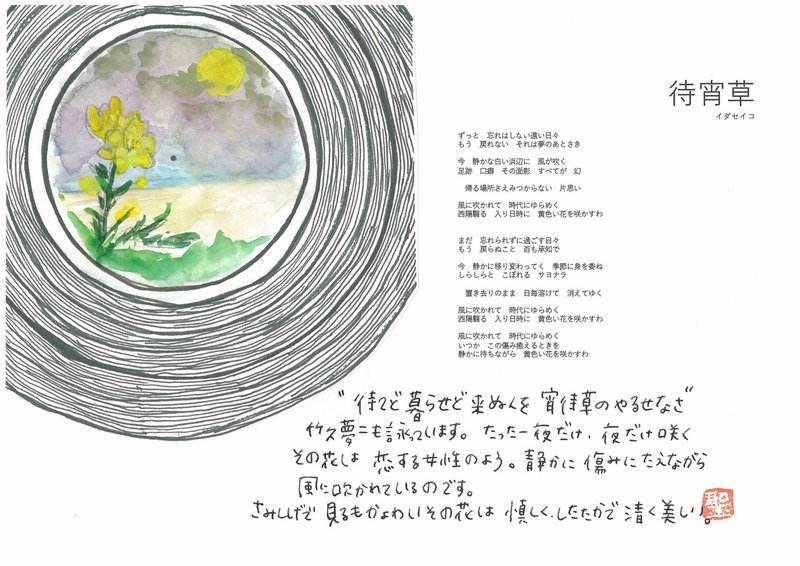 待宵草
イダセイコ
ずっと　忘れはしない遠い日々
もう　戻れない　それは夢のあとさき
今　静かな白い浜辺に　風が吹く
足跡　口癖　その面影　すべてが　幻
帰る場所さえみつからない　片思い
風に吹かれて　時代にゆらめく
西陽翳る　入り日時に　黄色い花を咲かすわ
まだ　忘れられずに過ごす日々
もう　戻らぬこと　百も承知で
今　静かに移り変わってく　季節に身を委ね
しらしらと　こぼれる　サヨナラ
置き去りのまま　日毎溶けて　消えてゆく
風に吹かれて　時代にゆらめく
西陽翳る　入り日時に　黄色い花を咲かすわ
風に吹かれて　時代にゆらめく
いつか　この傷み癒えるときを
静かに待ちながら　黄色い花を咲かすわ
"待てど暮らせど来ぬ人を 宵待草のやるせなさ"
竹久夢二も詠っています。たった一夜だけ、夜だけ咲く
その花は 恋する女性のよう。静かに 傷みにたえながら
風に吹かれているのです。
さみしげで 見るもかよわいその花は 慎しく、したたかで 清く美しい。